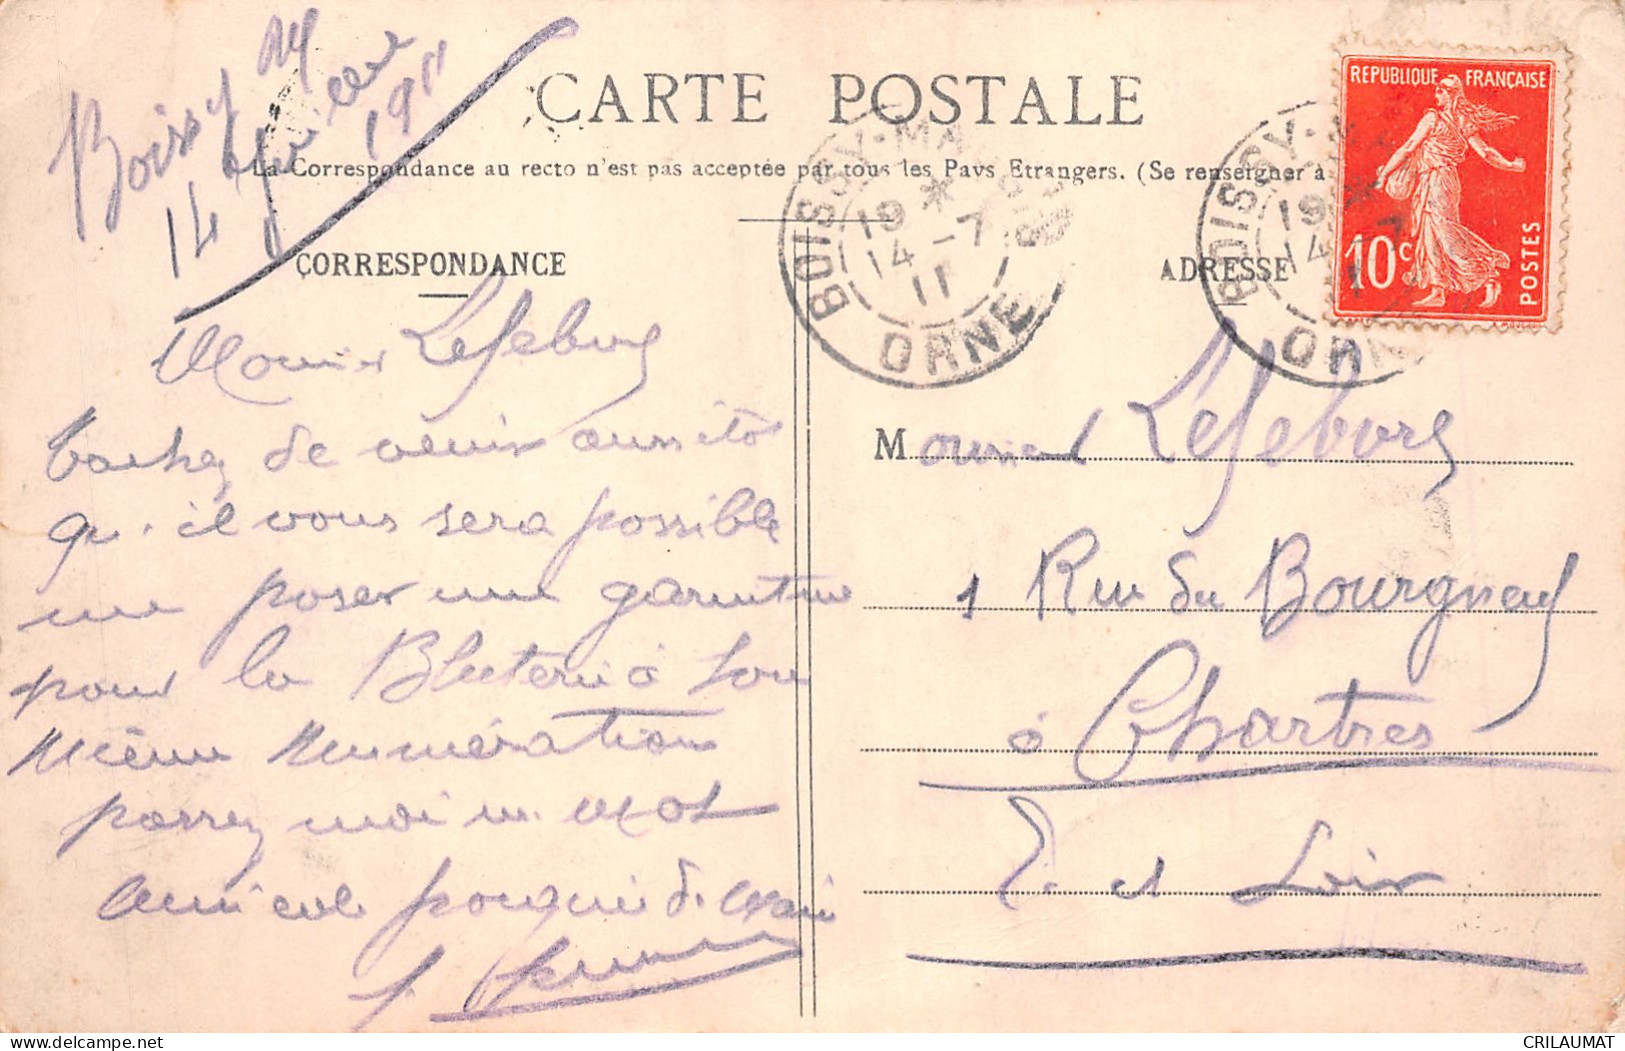 Boissy M
14 Juillet 1911
CARTE POSTALE
La Correspondance au recto n'est pas acceptée par tous les Pays Etrangers. (Se renseigner à
CORRESPONDANCE
ADRESSE
REPUBLIQUE FRANÇAISE
10c
POSTES
BOISSY-MA
19 *
14-7
11
ORNE
BOISSY
19 *
14 7
1
ORNE
Lefebvre
tachez de venir aussitot
qu'il vous sera possible
me poser une garniture
pour la à
même
moi un mot
Monsieur Lefebvre
1 Rue du Bourgneuf
à Chartres
E. et Loir
CRILAUMAT